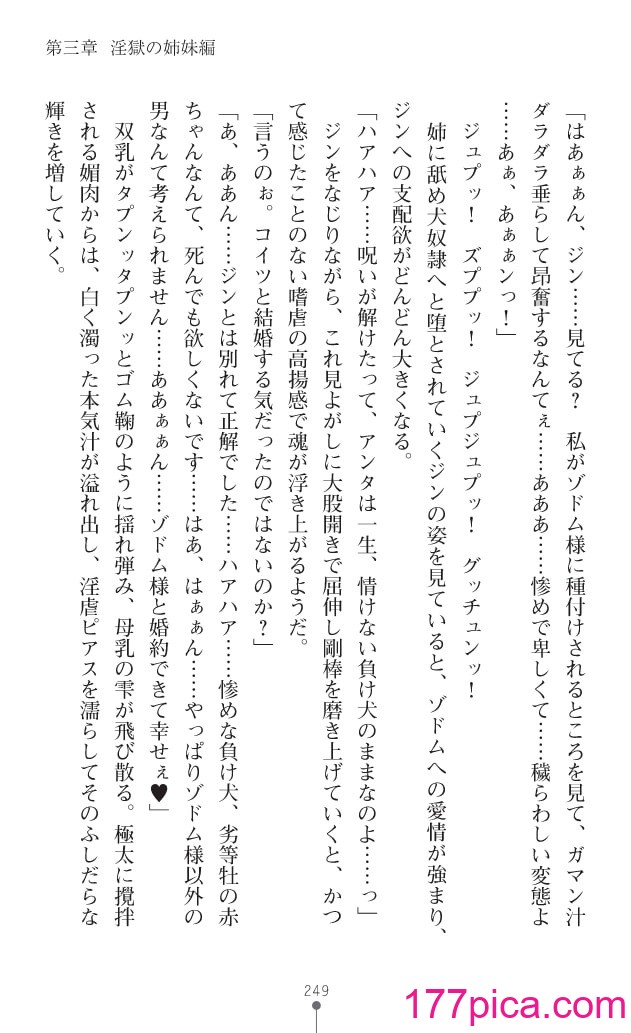 第三章　淫獄の姉妹編
「はあぁぁん、ジン……見てる？　私がゾドム様に種付けされるところを見て、ガマン汁
ダラダラ垂らして昂奮するなんてぇ……あああ……惨めで卑しくて……穢らわしい変態よ
……あぁ、あぁぁンっ！」
ジュプッ！　ズププッ！　ジュプジュプッ！　グッチュンッ！
姉に舐め犬奴隷へと堕とされていくジンの姿を見ていると、ゾドムへの愛情が強まり、
ジンへの支配欲がどんどん大きくなる。
「ハアハア……呪いが解けたって、アンタは一生、情けない負け犬のままなのよ……っ」
ジンをなじりながら、これ見よがしに大股開きで屈伸し剛棒を磨き上げていくと、かつ
て感じたことのない嗜虐の高揚感で魂が浮き上がるようだ。
「言うのぉ。コイツと結婚する気だったのではないのか？」
「あ、ああん……ジンとは別れて正解でした……ハアハア……惨めな負け犬、劣等牡の赤
ちゃんなんて、死んでも欲しくないです……はあ、はぁぁん……やっぱりゾドム様以外の
男なんて考えられません……ああぁぁん……ゾドム様と婚約できて幸せぇ♥」
双乳がタプンッタプンッとゴム鞠のように揺れ弾み、母乳の雫が飛び散る。極太に攪拌
される媚肉からは、白く濁った本気汁が溢れ出し、淫虐ピアスを濡らしてそのふしだらな
輝きを増していく。
249
177pica.com